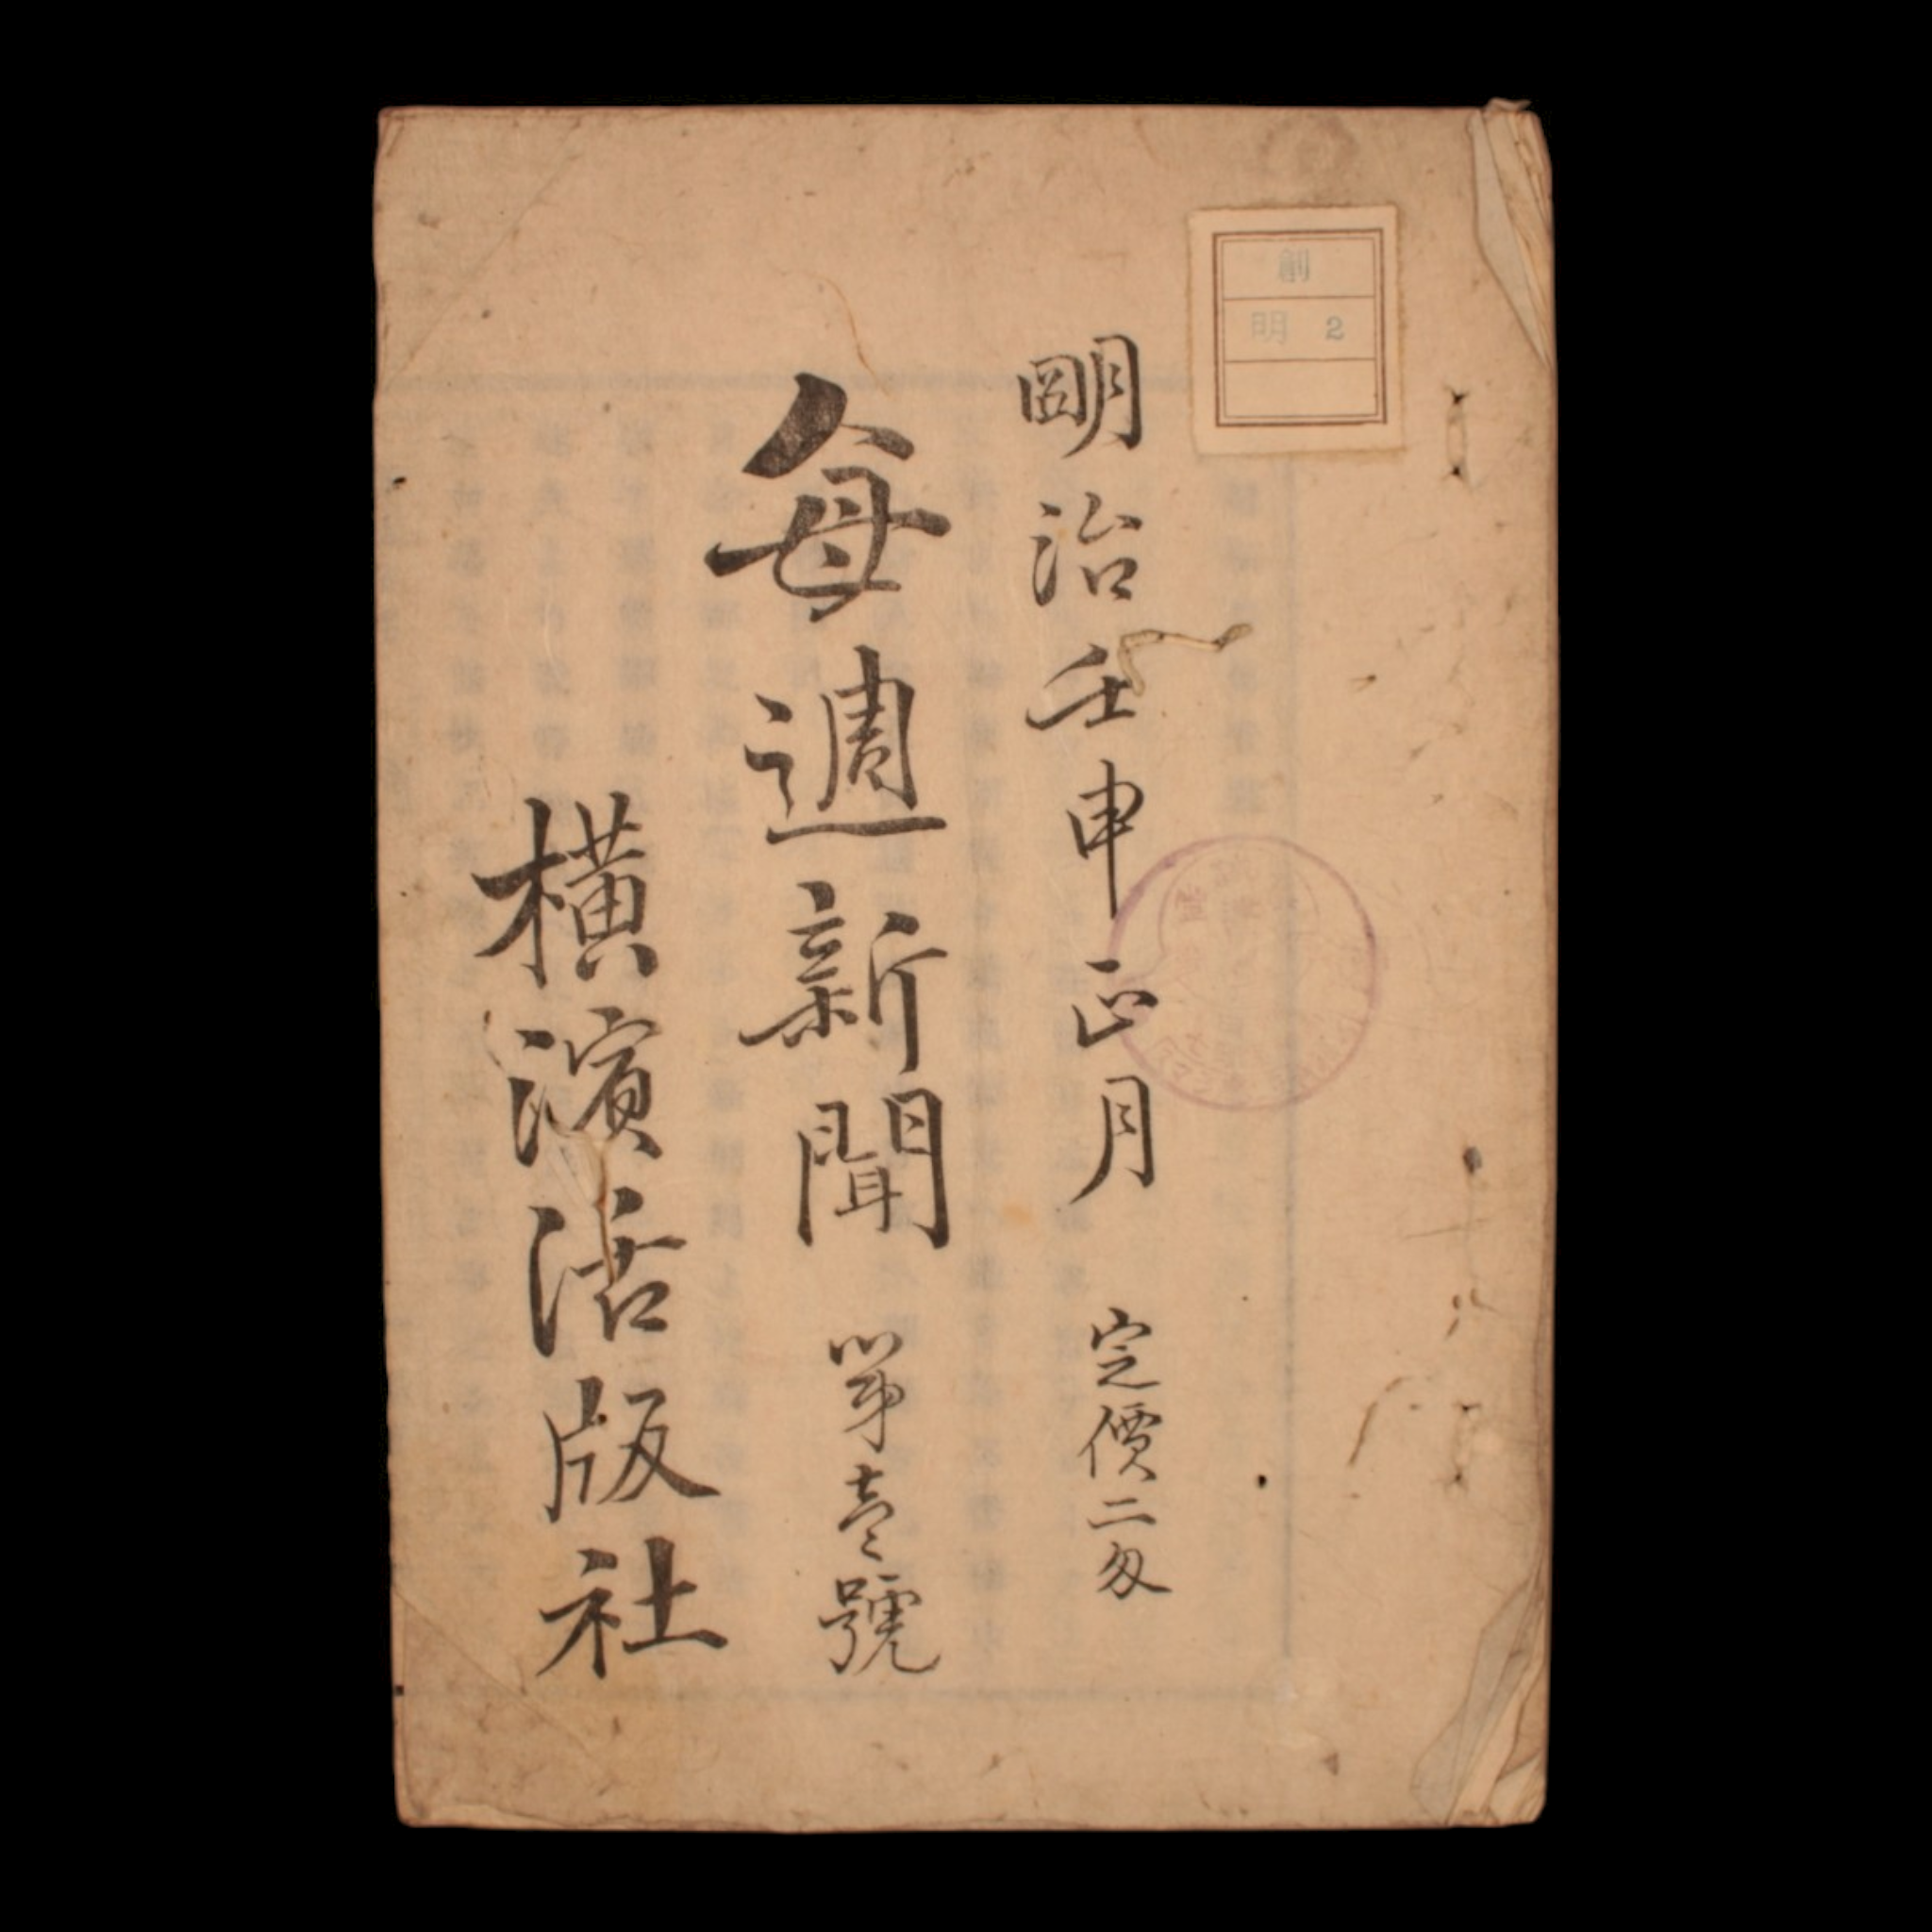 創
明 2
明治壬申正月 定價二匁
每週新聞 第壹號
橫濱活版社